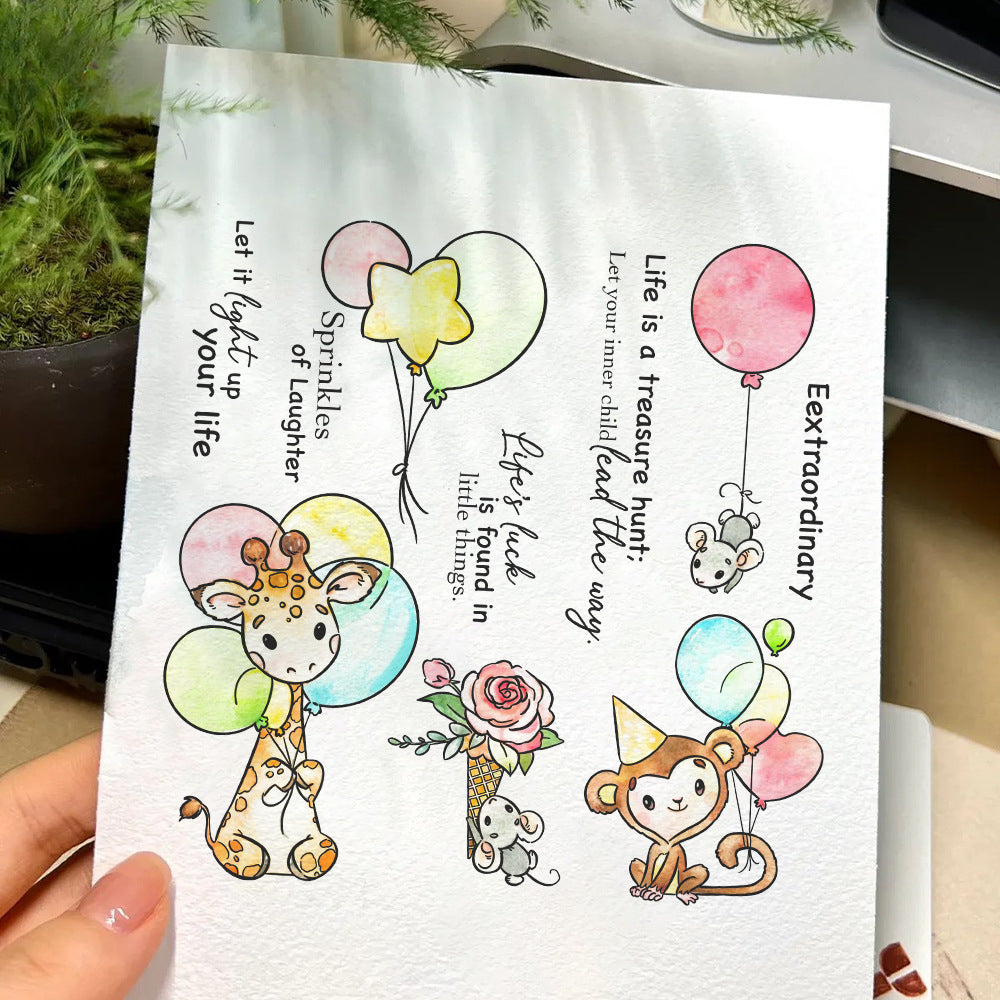 Eextraordinary
Life is a treasure hunt;
Let your inner child lead the way.
Life's luck
is found in
little things.
Sprinkles
of Laughter
Let it light up
your life